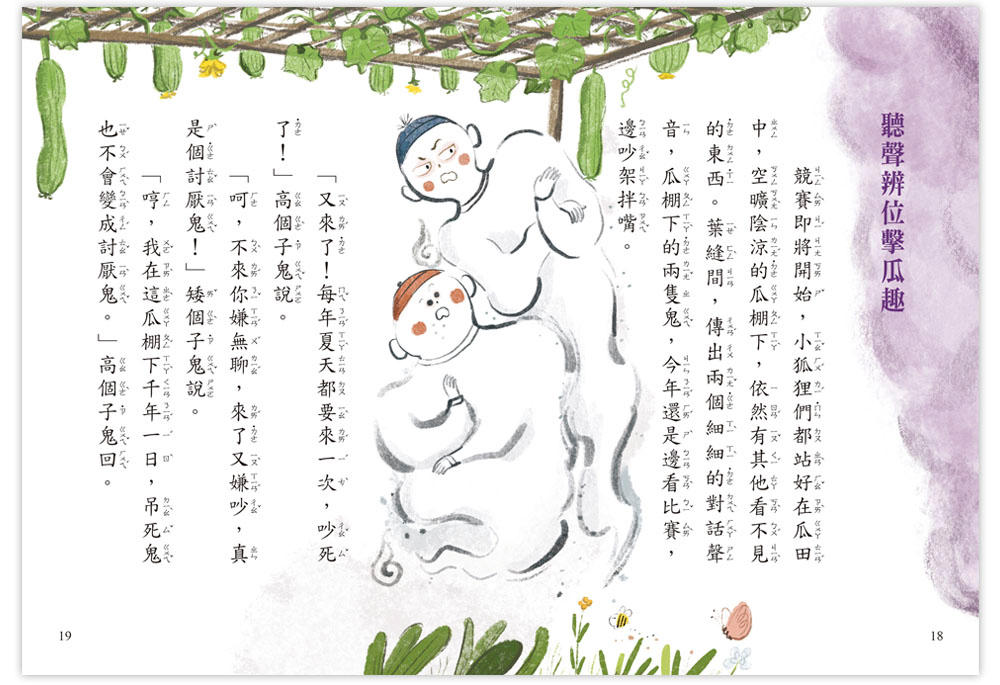 聽聲辨位擊瓜趣
競賽即將開始，小狐狸們都站好在瓜田
中，空曠陰涼的瓜棚下，依然有其他看不見
的東西。葉縫間，傳出兩個細細的對話聲
音，瓜棚下的兩隻鬼，今年還是邊看比賽，
邊吵架拌嘴。
「又來了！每年夏天都要來一次，吵死
了！」高個子鬼說。
「呵，不來你嫌無聊，來了又嫌吵，真
是個討厭鬼！」矮個子鬼說。
「哼，我在這瓜棚下千年一日，吊死鬼
也不會變成討厭鬼。」高個子鬼回。
18
19